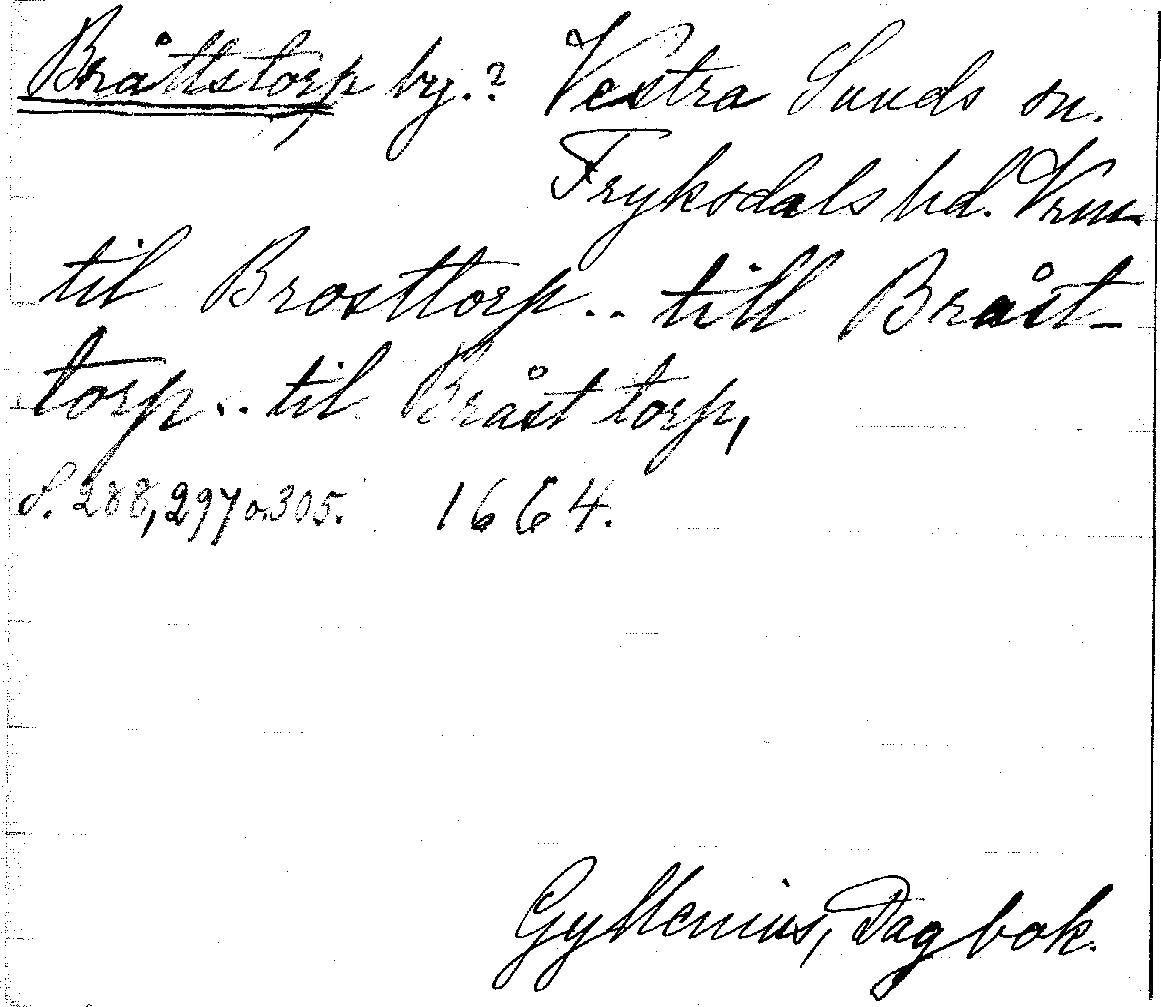 Bråttstorp by.? Vestra Sunds sn.
Fryksdals hd. Vrm.
til Brosttorp.. till Bråst-
torp.. til Bråst torp,
S. 288, 297 o. 305. 1664.
Gyllenius, Dagbok.